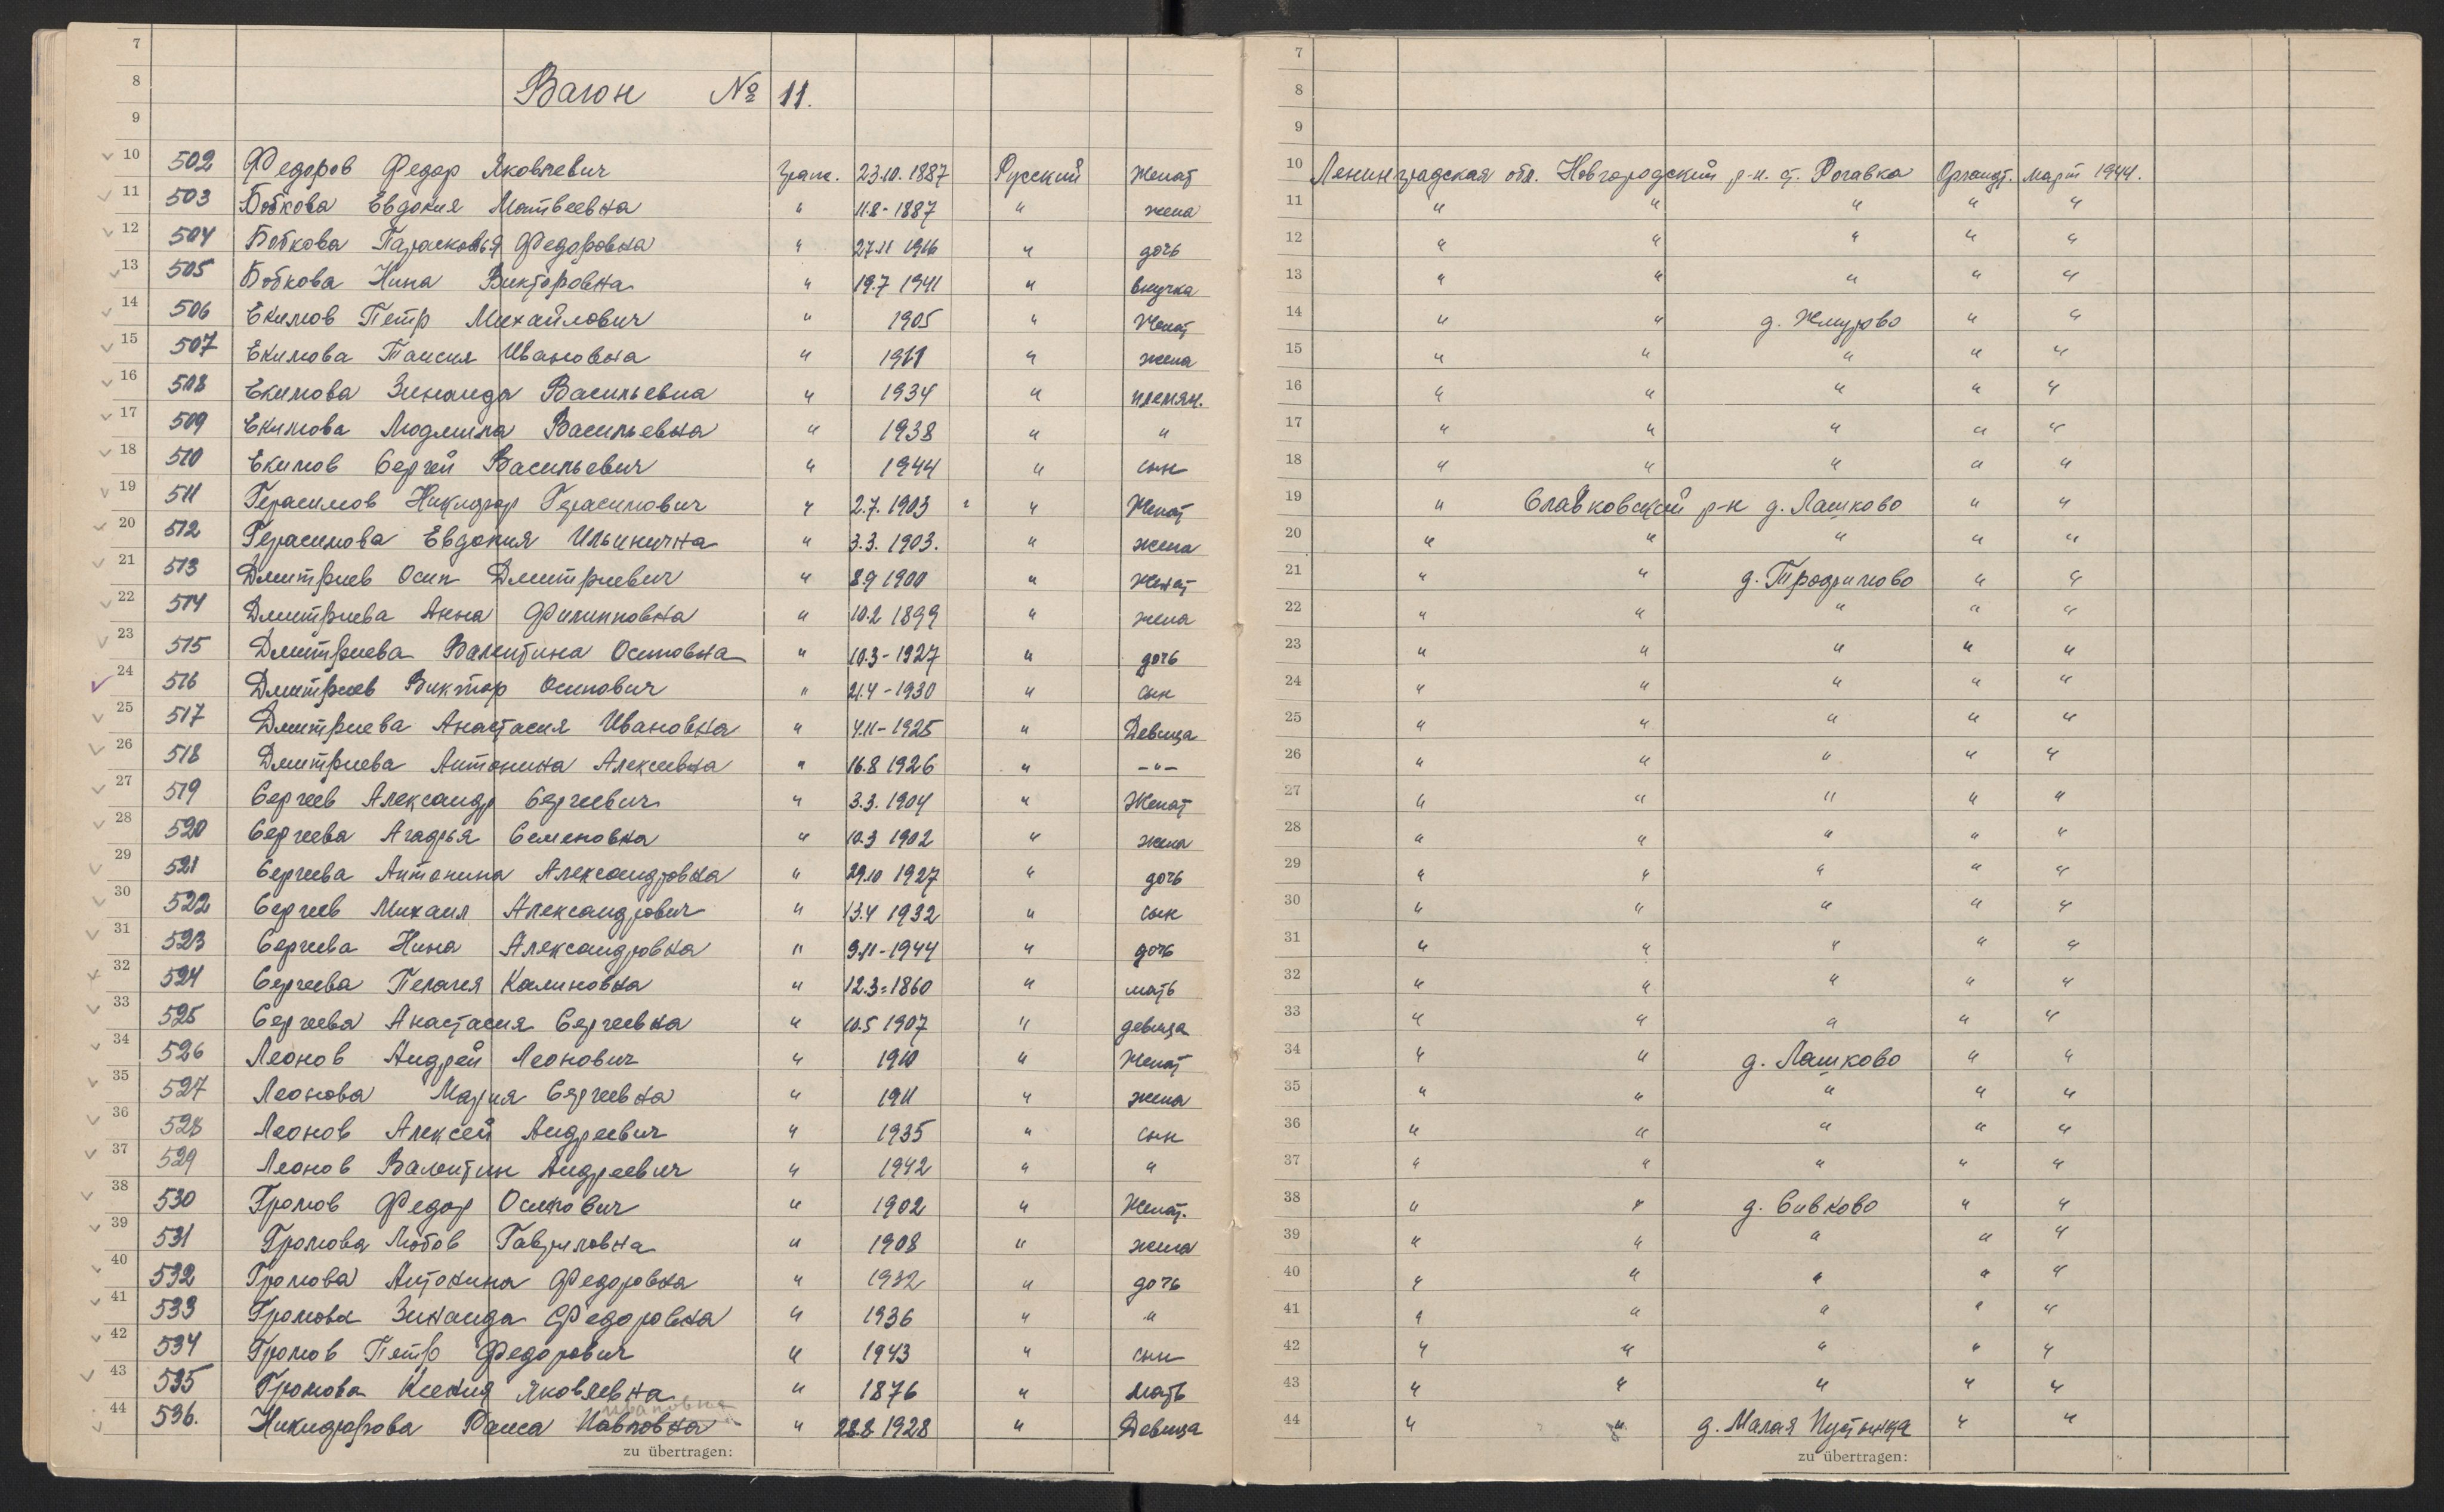 7 7
8 Вагон № 11. 8
9 9
10 502 Федоров Федор Яковлевич гран. 23.10.1887 Русский Женат 10 Ленинградская обл. Новгородский р-н. ст. Рогавка март 1944.
11 503 Бобкова Евдокия Матвеевна " 11.8-1887 " жена 11 " " " " "
12 504 Бобкова Парасковья Федоровна " 27.11 1916 " дочь 12 " " " " "
13 505 Бобкова Нина Викторовна " 19.7 1941 " внучка 13 " " " " "
14 506 Екимов Петр Михайлович " 1905 " Женат 14 " " д. Жмурово " "
15 507 Екимова Таисия Ивановна " 1911 " жена 15 " " " " "
16 508 Екимова Зинаида Васильевна " 1934 " племян. 16 " " " " "
17 509 Екимова Людмила Васильевна " 1938 " " 17 " " " " "
18 510 Екимов Сергей Васильевич " 1944 " сын 18 " " " " "
19 511 Герасимов Никифор Герасимович " 2.7.1903 " " Женат 19 " Славковский р-н д. Лашково " "
20 512 Герасимова Евдокия Ильинична " 3.3.1903. " жена 20 " " " " "
21 513 Дмитриев Осип Дмитриевич " 8.9 1900 " Женат 21 " " д. Трофимово " "
22 514 Дмитриева Анна Филипповна " 10.2 1899 " жена 22 " " " " "
23 515 Дмитриева Валентина Осиповна " 10.3-1927 " дочь 23 " " " " "
24 516 Дмитриев Виктор Осипович " 21.4-1930 " сын 24 " " " " "
25 517 Дмитриева Анастасия Ивановна " 4.11-1925 " Девица 25 " " " " "
26 518 Дмитриева Антонина Алексеевна " 16.8 1926 " -"- 26 " " " " "
27 519 Сергеев Александр Сергеевич " 3.3.1904 " Женат 27 " " " " "
28 520 Сергеева Агафья Семеновна " 10.3 1902 " жена 28 " " " " "
29 521 Сергеева Антонина Александровна " 29.10 1927 " дочь 29 " " " " "
30 522 Сергеев Михаил Александрович " 13.4 1932 " сын 30 " " " " "
31 523 Сергеева Нина Александровна " 9.11-1944 " дочь 31 " " " " "
32 524 Сергеева Пелагея Калиновна " 12.3-1860 " мать 32 " " " " "
33 525 Сергеева Анастасия Сергеевна " 10.5 1907 " девица 33 " " " " "
34 526 Леонов Андрей Леонович " 1910 " Женат 34 " " д. Лашково " "
35 527 Леонова Мария Сергеевна " 1911 " жена 35 " " " " "
36 528 Леонов Алексей Андреевич " 1935 " сын 36 " " " " "
37 529 Леонов Валентин Андреевич " 1942 " " 37 " " " " "
38 530 Громов Федор Осипович " 1902 " Женат. 38 " " д. Сивково " "
39 531 Громова Любов Гавриловна " 1908 " жена 39 " " " " "
40 532 Громова Антонина Федоровна " 1932 " дочь 40 " " " " "
41 533 Громова Зинаида Федоровна " 1936 " " 41 " " " " "
42 534 Громов Петр Федорович " 1943 " сын 42 " " " " "
43 535 Громова Ксения Яковлевна " 1876 " мать 43 " " " " "
ивановна
44 536. Никифорова Раиса Павловна " 28.8 1928 " Девица 44 " " д. Малая Пустынка " "
zu übertragen: zu übertragen: